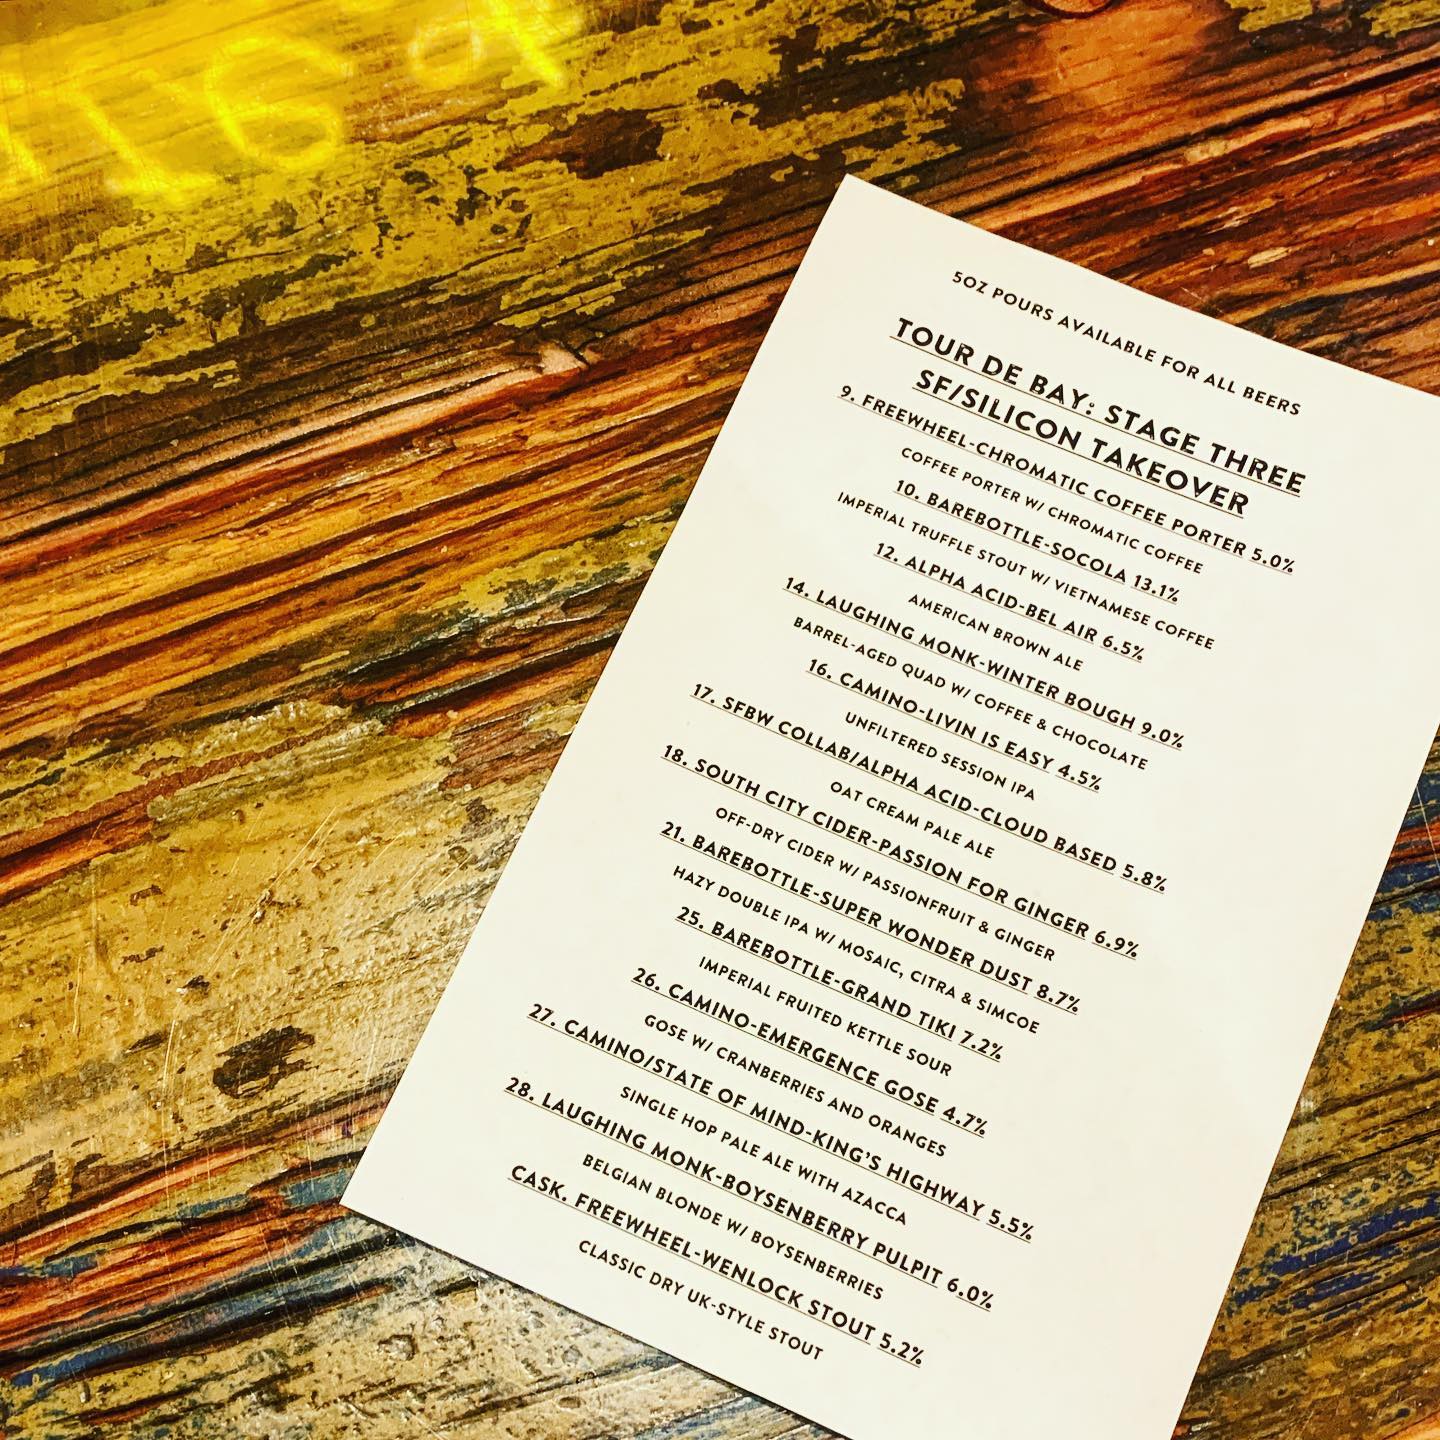 5OZ POURS AVAILABLE FOR ALL BEERS
TOUR DE BAY: STAGE THREE
SF/SILICON TAKEOVER
9. FREEWHEEL-CHROMATIC COFFEE PORTER 5.0%
COFFEE PORTER W/ CHROMATIC COFFEE
10. BAREBOTTLE-SOCOLA 13.1%
IMPERIAL TRUFFLE STOUT W/ VIETNAMESE COFFEE
12. ALPHA ACID-BEL AIR 6.5%
AMERICAN BROWN ALE
14. LAUGHING MONK-WINTER BOUGH 9.0%
BARREL-AGED QUAD W/ COFFEE & CHOCOLATE
16. CAMINO-LIVIN IS EASY 4.5%
UNFILTERED SESSION IPA
17. SFBW COLLAB/ALPHA ACID-CLOUD BASED 5.8%
OAT CREAM PALE ALE
18. SOUTH CITY CIDER-PASSION FOR GINGER 6.9%
OFF-DRY CIDER W/ PASSIONFRUIT & GINGER
21. BAREBOTTLE-SUPER WONDER DUST 8.7%
HAZY DOUBLE IPA W/ MOSAIC, CITRA & SIMCOE
25. BAREBOTTLE-GRAND TIKI 7.2%
IMPERIAL FRUITED KETTLE SOUR
26. CAMINO-EMERGENCE GOSE 4.7%
GOSE W/ CRANBERRIES AND ORANGES
27. CAMINO/STATE OF MIND-KING'S HIGHWAY 5.5%
SINGLE HOP PALE ALE WITH AZACCA
28. LAUGHING MONK-BOYSENBERRY PULPIT 6.0%
BELGIAN BLONDE W/ BOYSENBERRIES
CASK. FREEWHEEL-WENLOCK STOUT 5.2%
CLASSIC DRY UK-STYLE STOUT